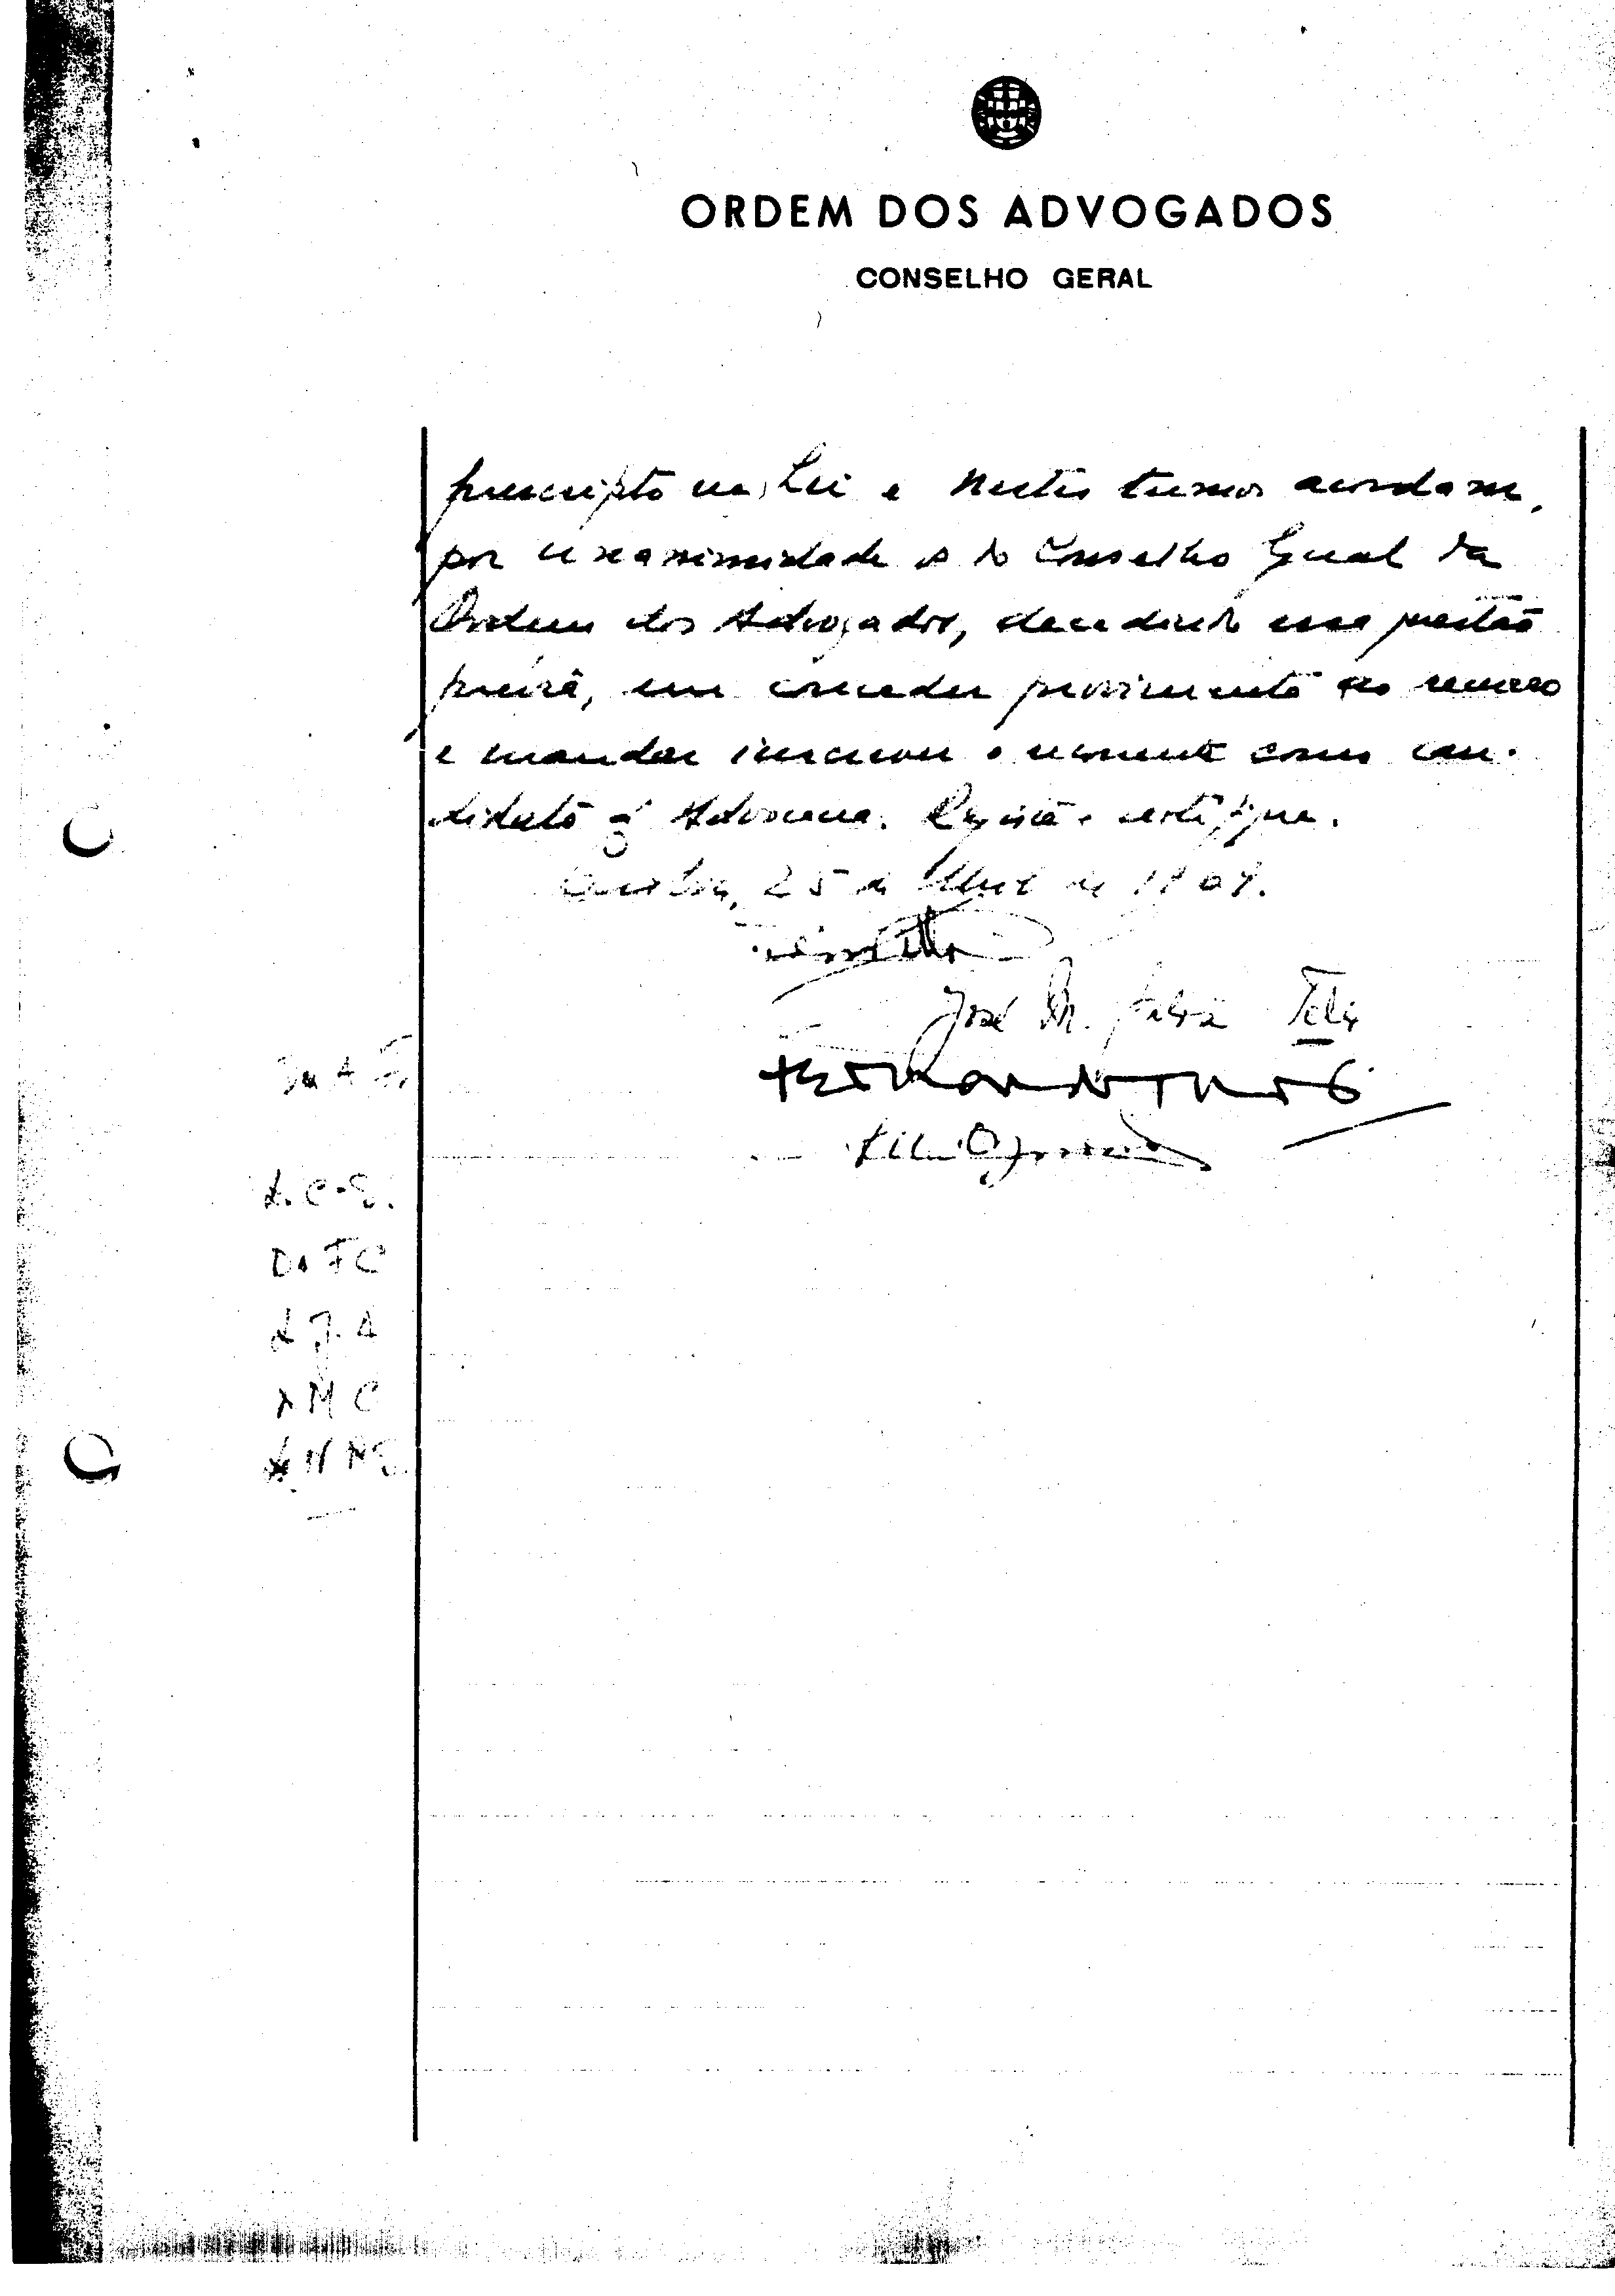 ORDEM DOS ADVOGADOS
CONSELHO GERAL
prescripto na Lei e nestes termos acordam,
por unanimidade os do Conselho Geral da
Ordem dos Advogados, decidindo essa questão
prévia, em conceder provimento ao recurso
e mandar inscrever o recorrente como can-
didato á Advocacia. Registe e certifique.
25 de Abril de
José M. Galvão Teles
L. C. S.
D. F C
J. A
M C